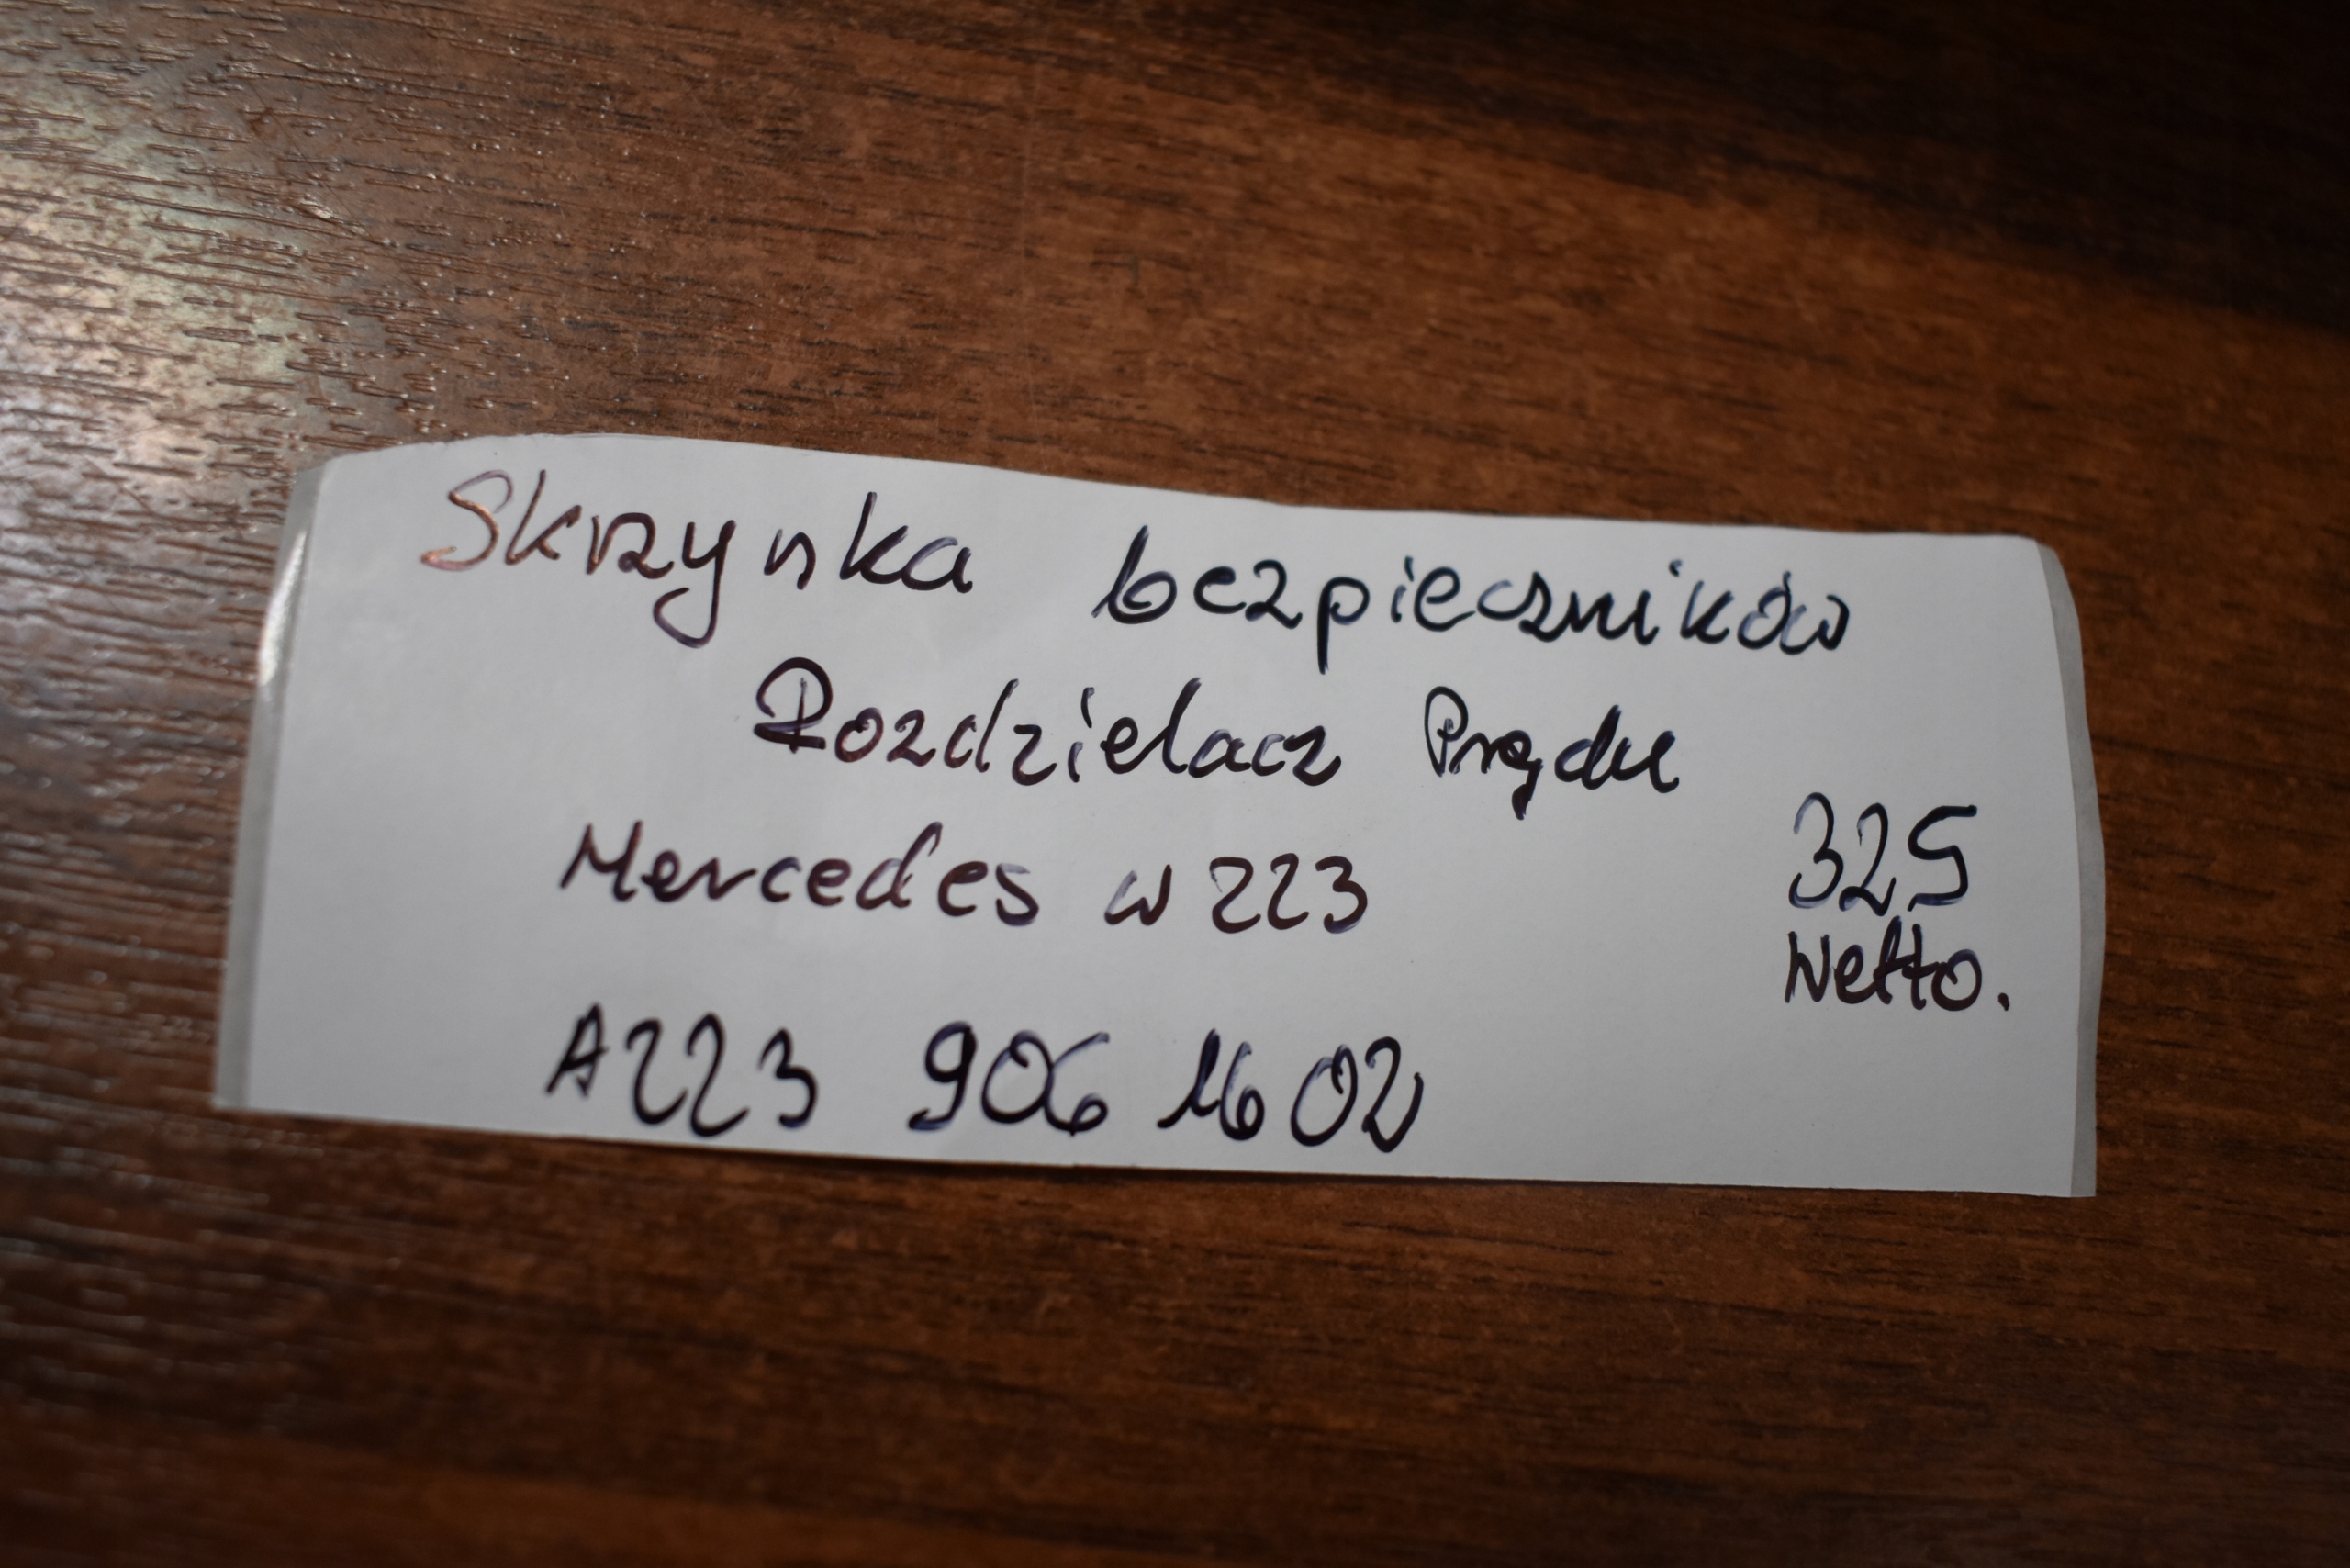 Skrzynka bezpieczników
Rozdzielacz Prądu
Mercedes w223
325
Netto.
A223 906 1602